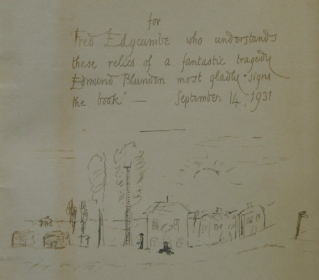 for
Fred Edgcumbe who understands
these relics of a fantastic tragedy
Edmund Blunden most gladly "signs
the book" — September 14, 1931